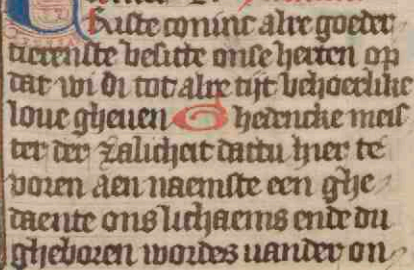 Kriste coninc alre goeder
tierenste besitte onse herten op
dat wi di tot alre tijt behoerlike
loue gheuen Ghedencke meis
ter der zalicheit dattu hier te
voren aen naemste een ghe
daente ons lichaems ende du
gheboren wordes vander on